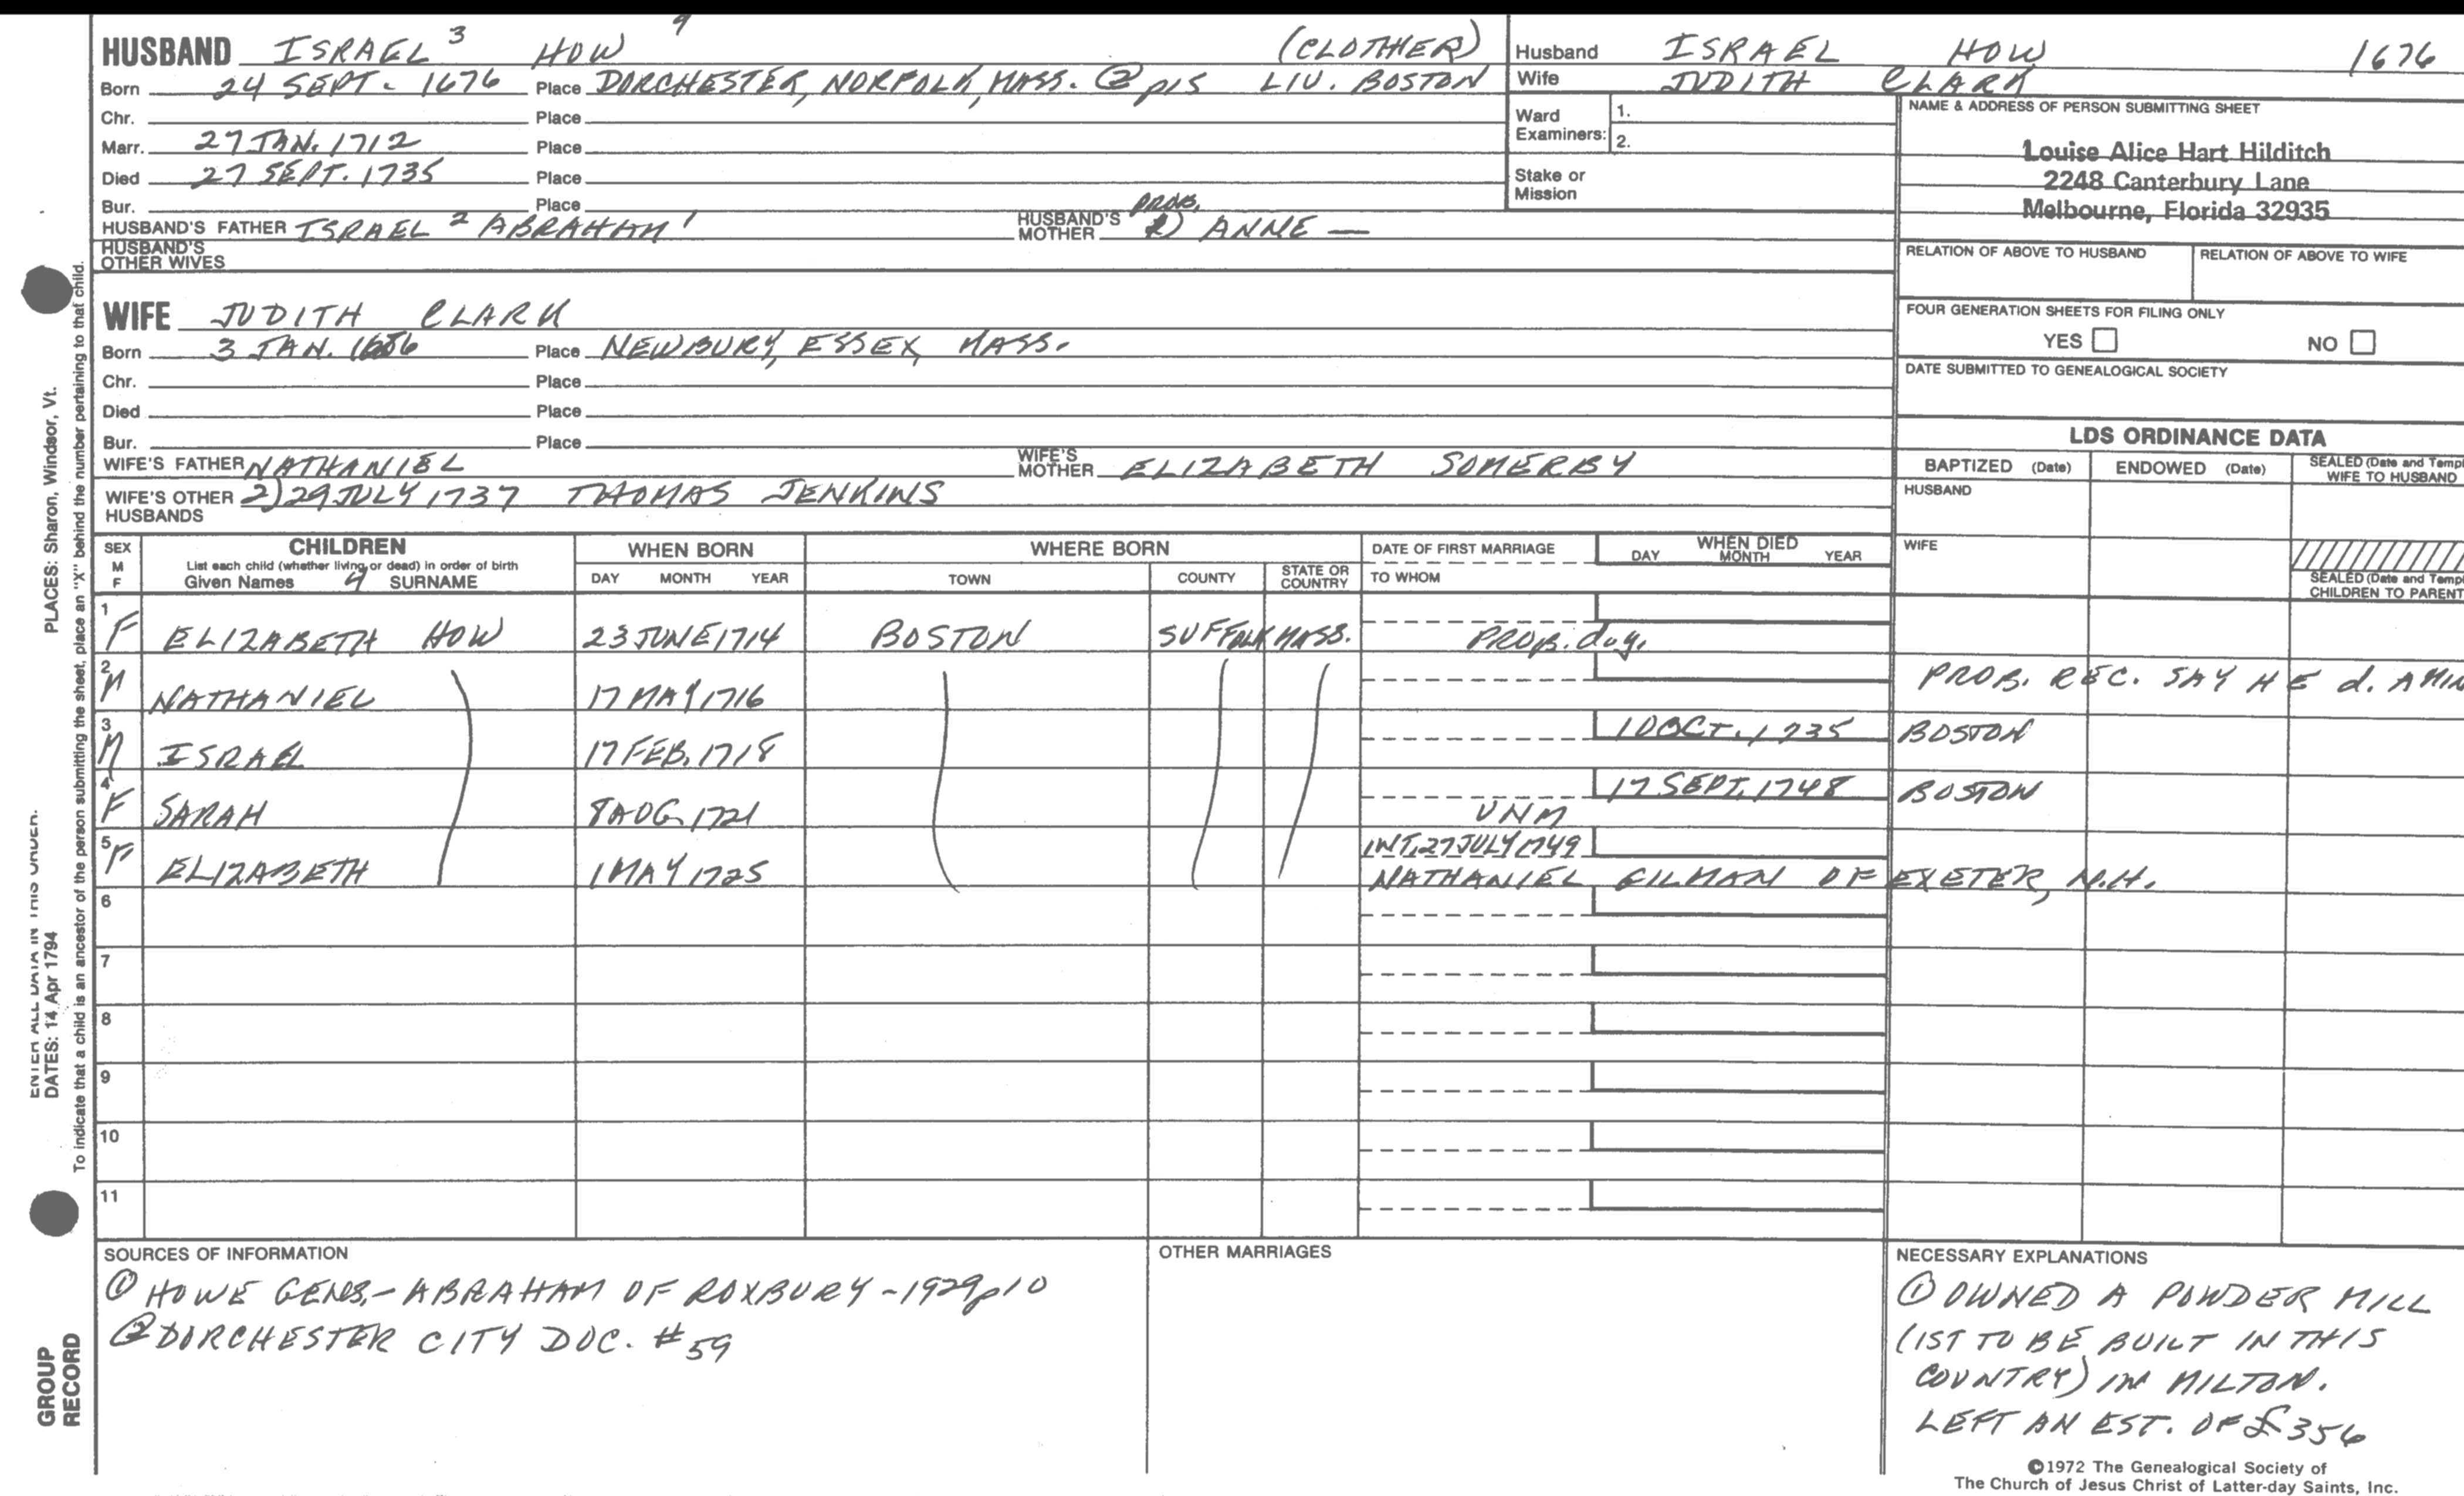 HUSBAND ISRAEL 3 HOW 4 (CLOTHIER)
Born 24 SEPT. 1676 Place DORCHESTER, NORFOLK, MASS. ② p15 LIV. BOSTON
Chr. Place
Marr. 27 JAN. 1712 Place
Died 27 SEPT. 1735 Place
Bur. Place
HUSBAND'S FATHER ISRAEL 2 ABRAHAM 1 HUSBAND'S MOTHER PROB. ANNE —
HUSBAND'S OTHER WIVES
Husband ISRAEL HOW 1676
Wife JUDITH CLARK
Ward Examiners: 1.
2.
Stake or Mission
NAME & ADDRESS OF PERSON SUBMITTING SHEET
Louise Alice Hart Hilditch
2248 Canterbury Lane
Melbourne, Florida 32935
RELATION OF ABOVE TO HUSBAND RELATION OF ABOVE TO WIFE
FOUR GENERATION SHEETS FOR FILING ONLY
YES NO
DATE SUBMITTED TO GENEALOGICAL SOCIETY
WIFE JUDITH CLARK
Born 3 JAN. Place NEWBURY, ESSEX, MASS.
Chr. Place
Died Place
Bur. Place
WIFE'S FATHER NATHANIEL WIFE'S MOTHER ELIZABETH SOMERBY
WIFE'S OTHER HUSBANDS 2) 29 JULY 1737 THOMAS JENKINS
LDS ORDINANCE DATA
BAPTIZED (Date) ENDOWED (Date) SEALED (Date and Templ
WIFE TO HUSBAND
HUSBAND
WIFE
SEALED (Date and Templ
CHILDREN TO PARENT
SEX M F CHILDREN WHEN BORN WHERE BORN DATE OF FIRST MARRIAGE WHEN DIED
List each child (whether living or dead) in order of birth
Given Names 4 SURNAME DAY MONTH YEAR TOWN COUNTY STATE OR COUNTRY TO WHOM DAY MONTH YEAR
1 F ELIZABETH HOW 23 JUNE 1714 BOSTON SUFFOLK MASS. PROB. d.y.
2 M NATHANIEL 17 MAY 1716 PROB. REC. SAY HE d.
3 M ISRAEL 17 FEB. 1718 1 OCT. 1735 BOSTON
4 F SARAH 8 AUG. 1721 UNM 17 SEPT. 1748 BOSTON
5 F ELIZABETH 1 MAY 1725 INT. 27 JULY 1749
NATHANIEL GILMAN OF EXETER, N.H.
6
7
8
9
10
11
SOURCES OF INFORMATION
① HOWE GENS. - ABRAHAM OF ROXBURY - 1929 p10
② DORCHESTER CITY DOC. # 59
OTHER MARRIAGES
NECESSARY EXPLANATIONS
① OWNED A POWDER MILL
(1ST TO BE BUILT IN THIS
COUNTRY) IN MILTON.
LEFT AN EST. OF £356
©1972 The Genealogical Society of
The Church of Jesus Christ of Latter-day Saints, Inc.
PLACES: Sharon, Windsor, Vt.
ENTER ALL DATA IN THIS ORDER:
DATES: 14 Apr 1794
To indicate that a child is an ancestor of the person submitting the sheet, place an "X" behind the number pertaining to that child.
GROUP
RECORD